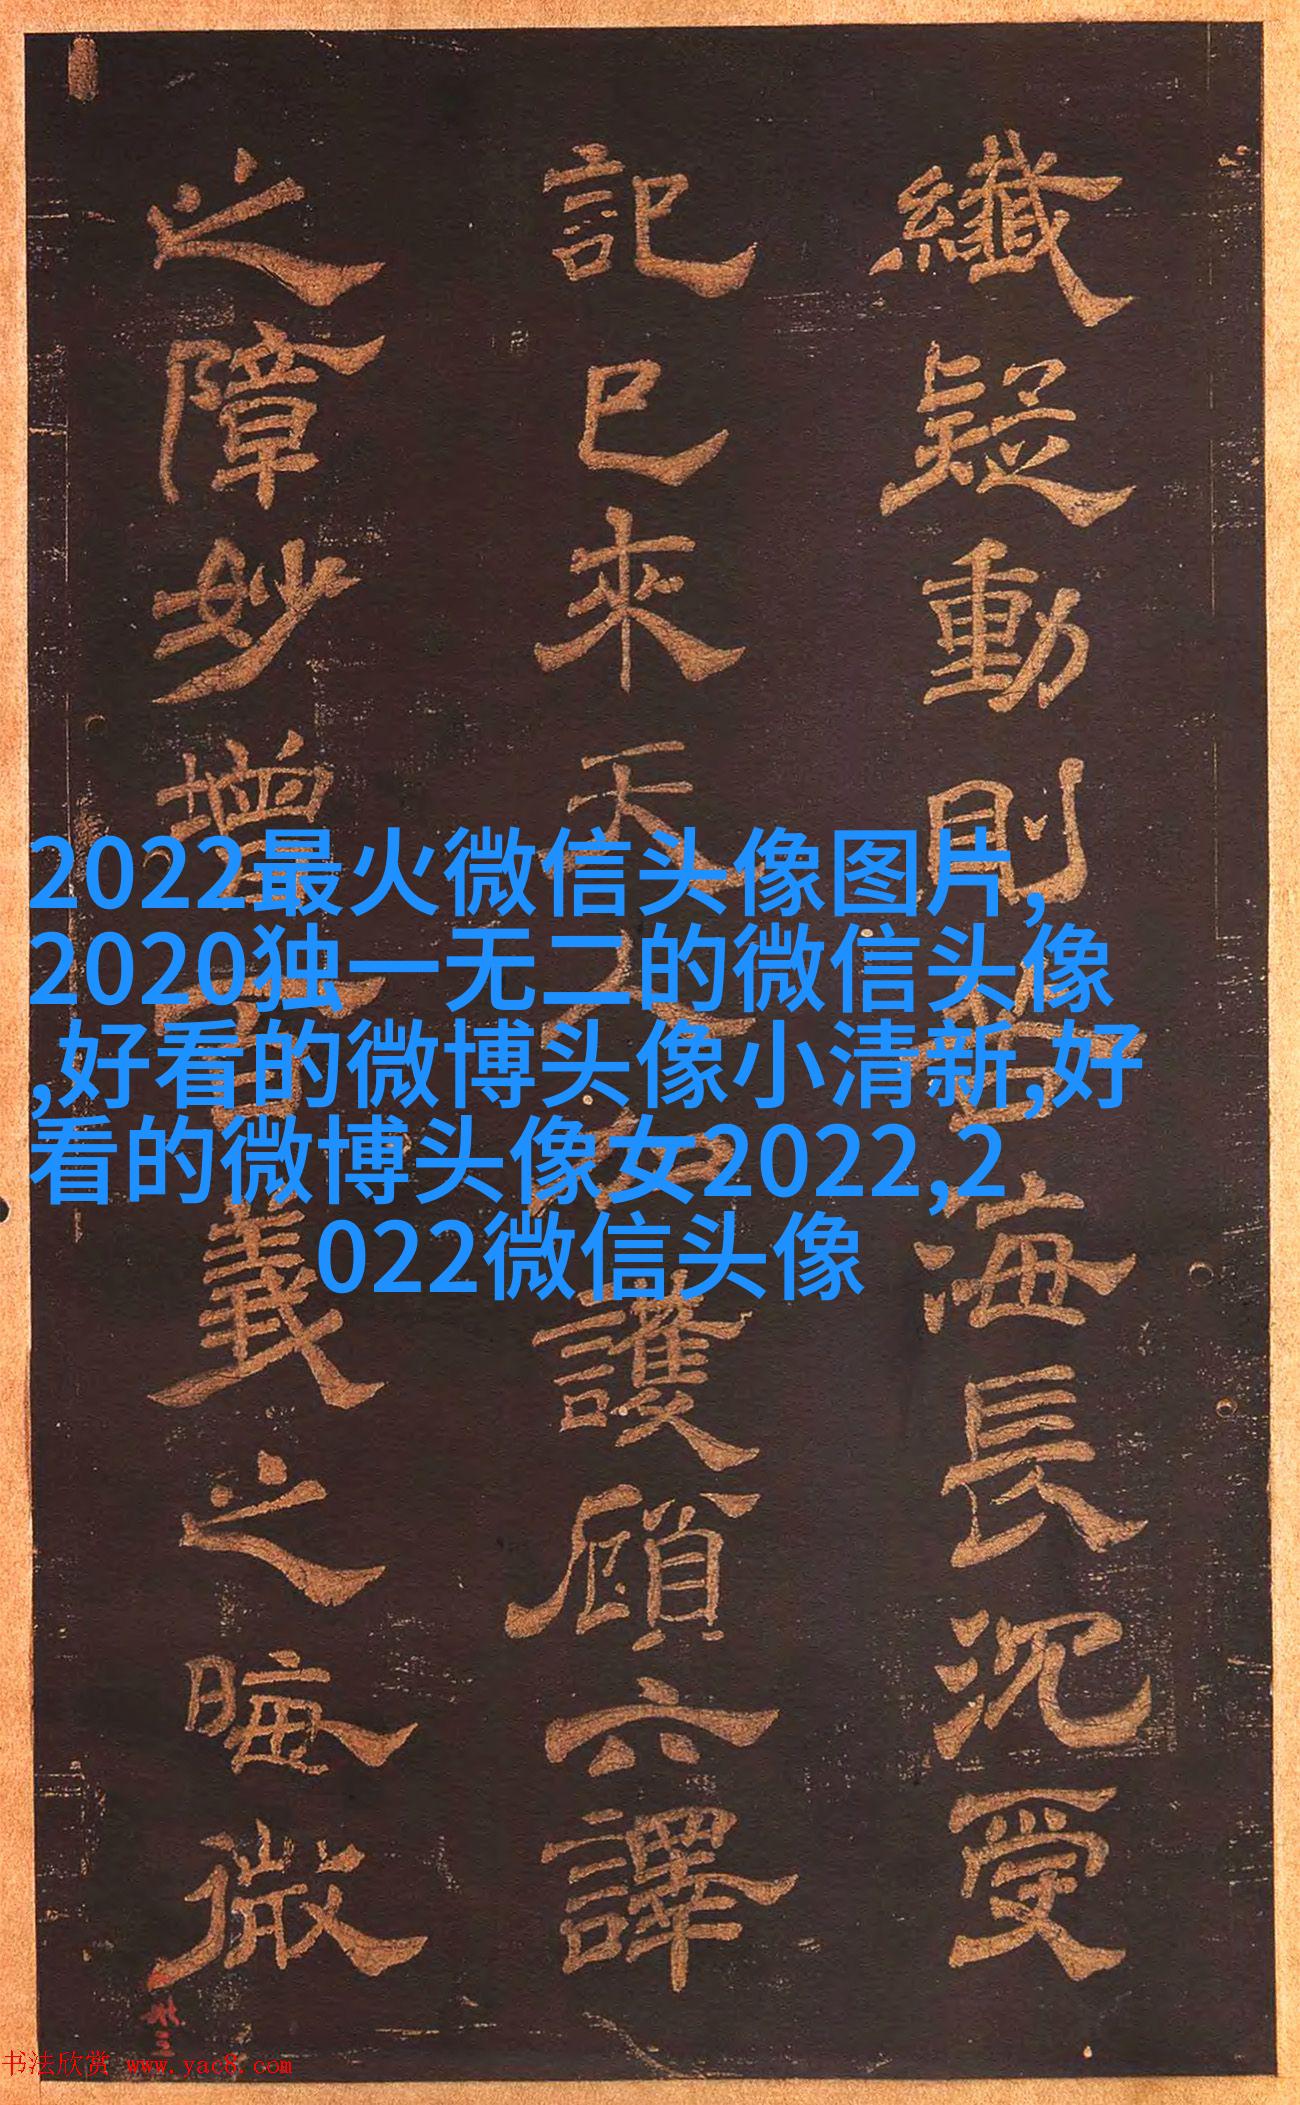 纖疑動則海長沉受
記已來天人護顧六譯
之障妙增義之晦微
2022最火微信头像图片,
2020独一无二的微信头像
,好看的微博头像小清新,好
看的微博头像女2022,2
022微信头像
书法欣赏 www.yac8.com